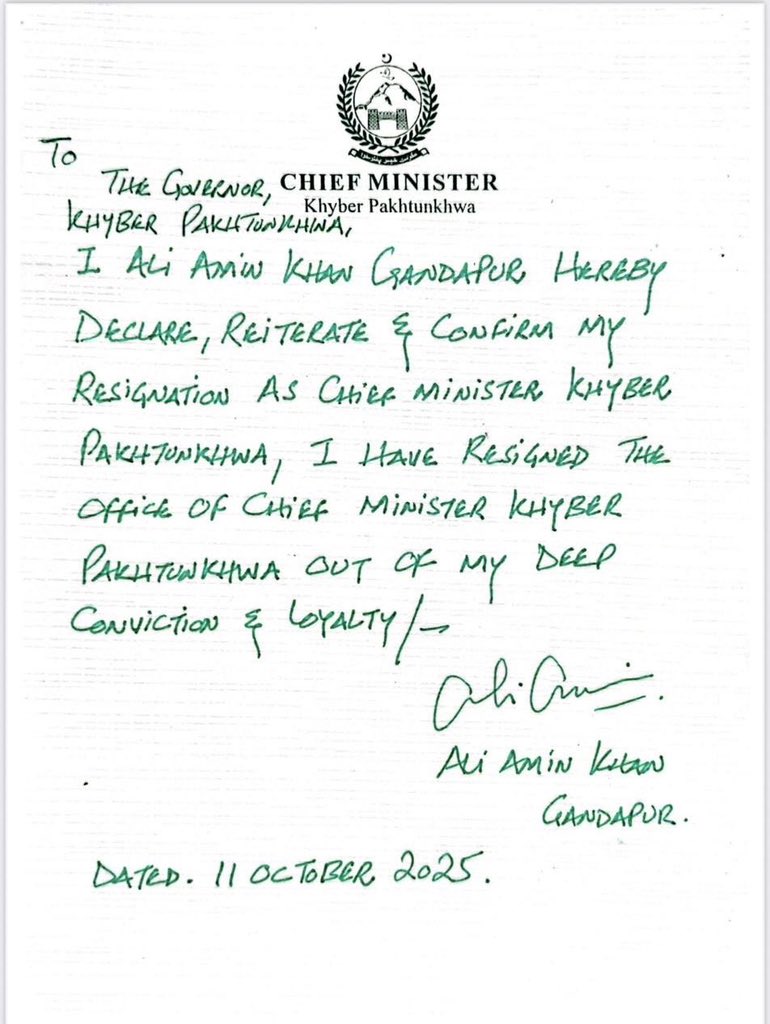 To
The Governor,
CHIEF MINISTER
Khyber Pakhtunkhwa
Khyber Pakhtunkhwa,
I Ali Amin Khan Gandapur Hereby
Declare, Reiterate & Confirm my
Resignation As Chief Minister Khyber
Pakhtunkhwa, I Have Resigned The
Office of Chief Minister Khyber
Pakhtunkhwa out of my Deep
Conviction & Loyalty/-
Ali Amin.
Ali Amin Khan
Gandapur.
Dated. 11 October 2025.